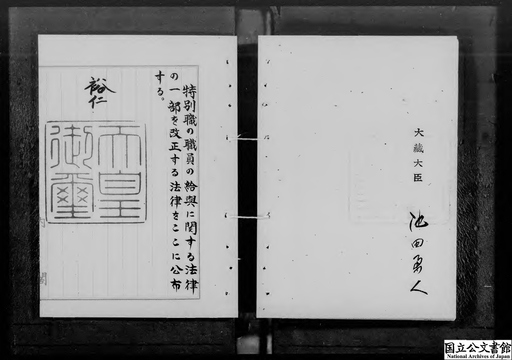 特別職の職員の給與に関する法律
の一部を改正する法律をここに公布
する。
裕仁
天皇
御璽
大藏大臣
池田勇人
国立公文書館
National Archives of Japan